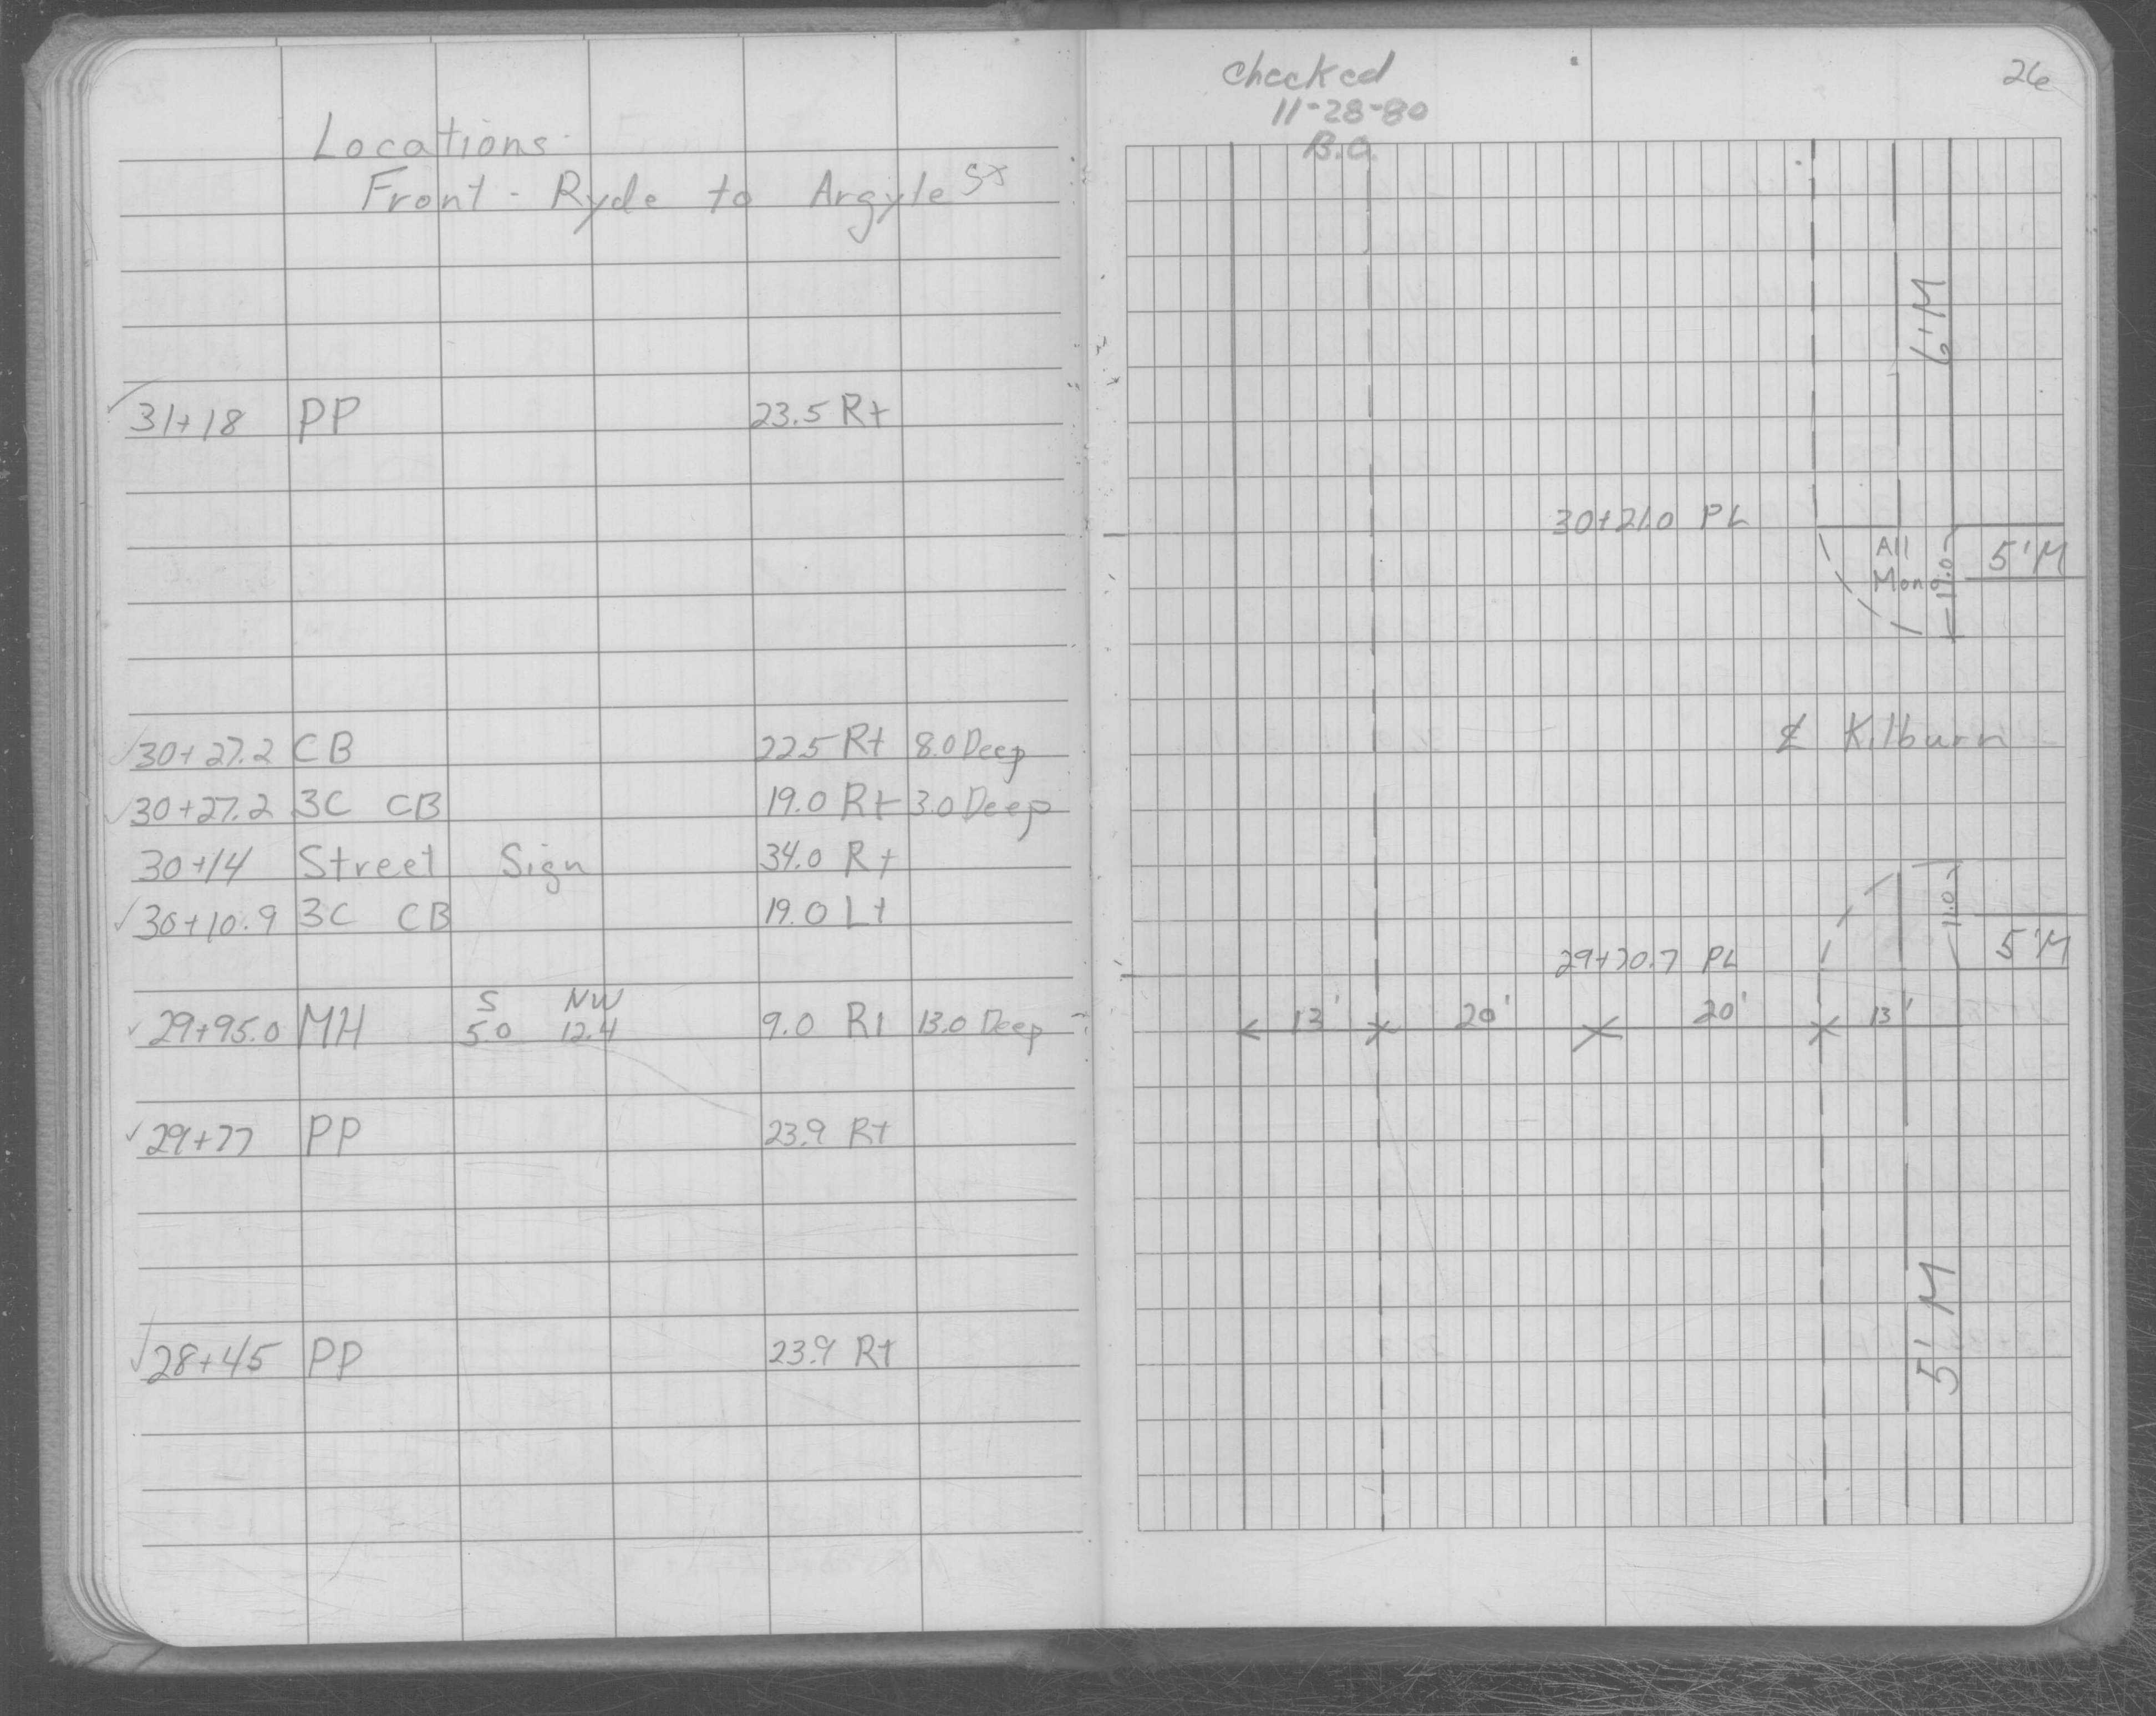 Locations
Front - Ryde to Argyle St
31+18 PP 23.5 Rt
30+27.2 CB 22.5 Rt 8.0 Deep
30+27.2 3C CB 19.0 Rt 3.0 Deep
30+14 Street Sign 34.0 Rt
30+10.9 3C CB 19.0 Lt
S NW
29+95.0 MH 5.0 12.4 9.0 Rt 13.0 Deep
29+77 PP 23.9 Rt
28+45 PP 23.9 Rt
Checked
11-28-80
26
6'M
30+21.0 PL
All
Mono
5'M
℄ Kilburn
11.0
29+70.7 PL
5'M
13' 20' 20' 13'
5'M